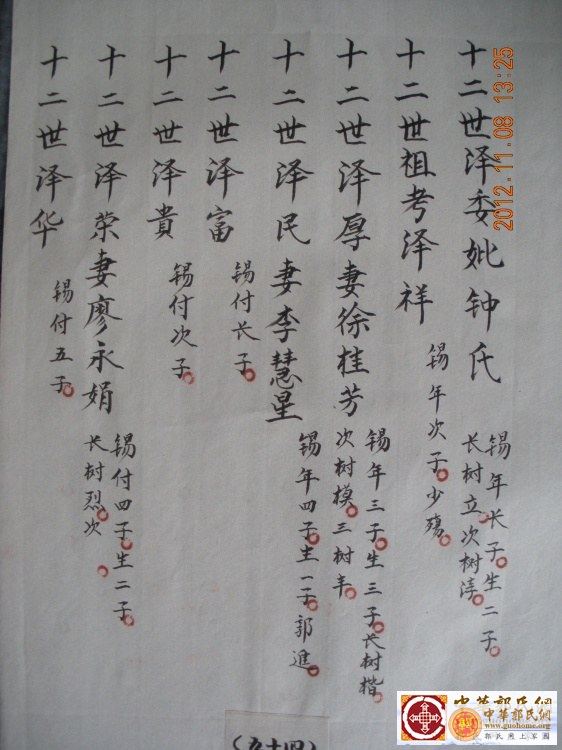 十二世泽委妣钟氏
锡年长子。生二子。
长树立。次树淳。
十二世祖考泽祥
锡年次子。少殇。
十二世泽厚妻徐桂芳
锡年三子。生三子。长树楷
次树模。三树丰。
十二世泽民妻李慧星
锡年四子。生一子。郭進。
十二世泽富
锡付长子。
十二世泽貴
锡付次子。
十二世泽荣妻廖永娟
锡付四子。生二子。
长树烈。次。
十二世泽华
锡付五子。
(五十四)
2012.11.08 13:25
中華郭氏網
中華郭氏網
www.guohome.org
郭氏网上家園